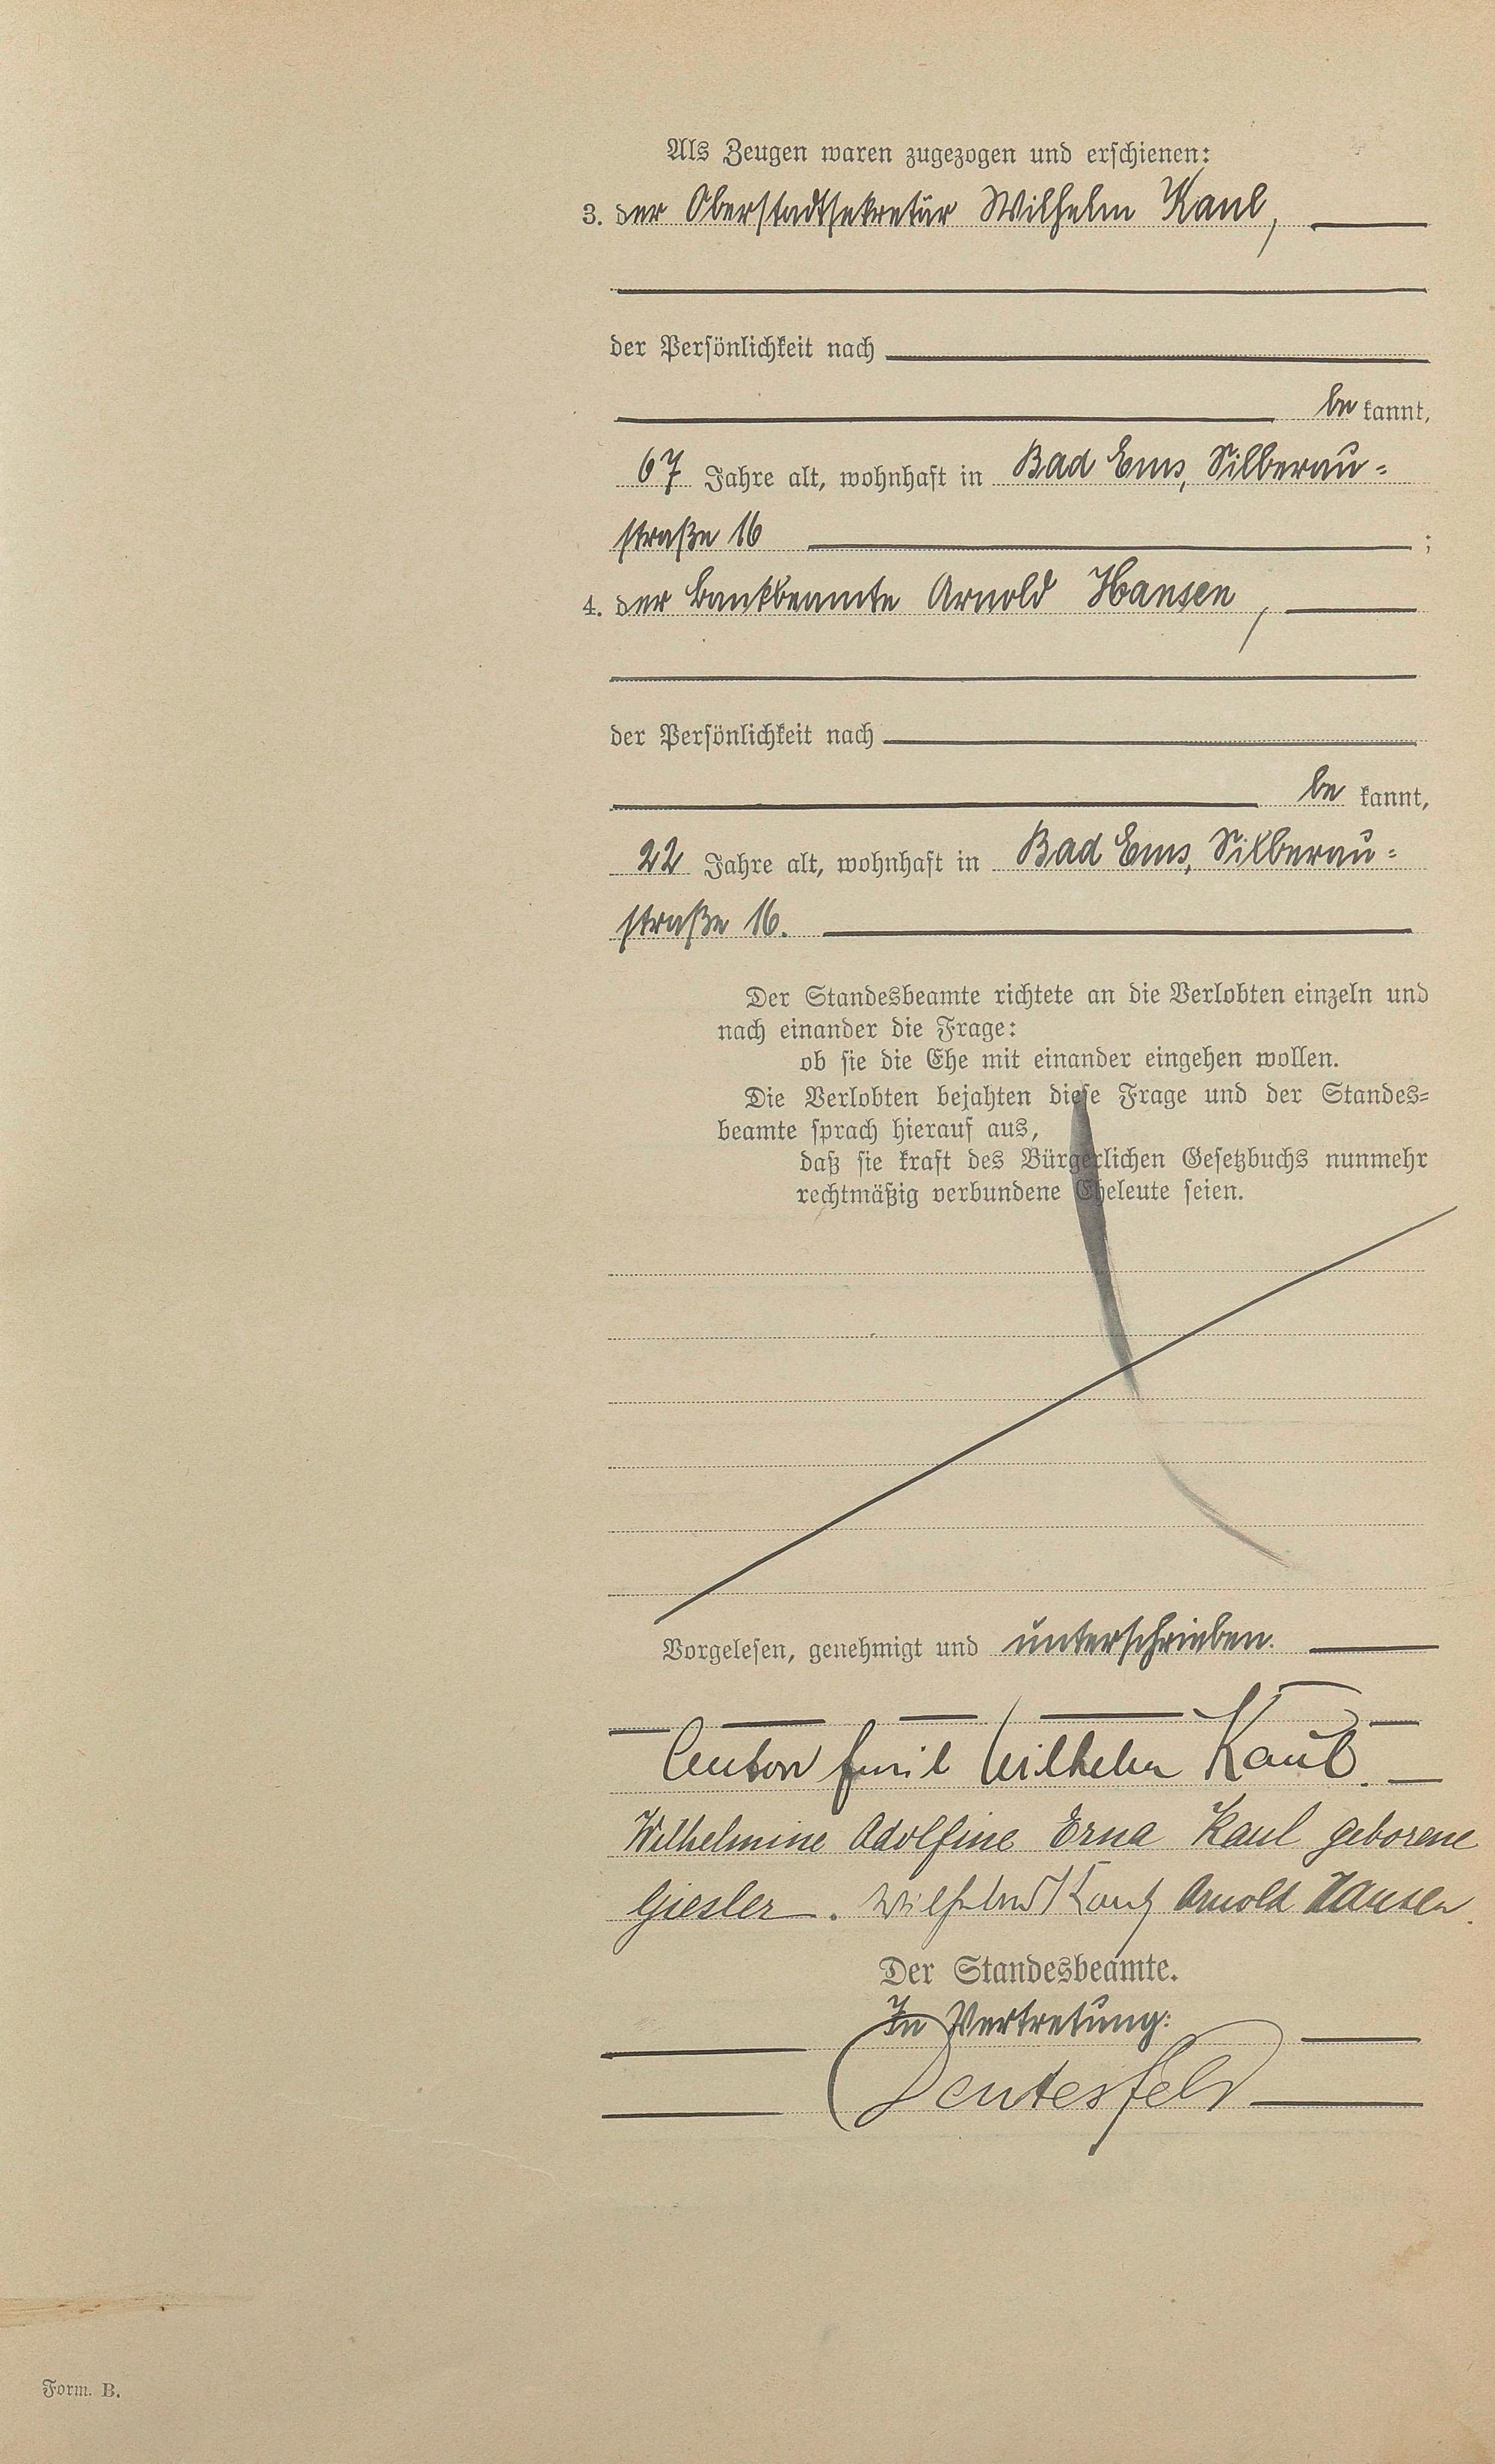 Als Zeugen waren zugezogen und erschienen:
3. der Oberstadtsekretär Wilhelm Kaul,
der Persönlichkeit nach
be kannt,
67 Jahre alt, wohnhaft in Bad Ems, Silberau-
straße 16 ;
4. der Bankbeamte Arnold Hansen,
der Persönlichkeit nach
be kannt,
22 Jahre alt, wohnhaft in Bad Ems, Silberau-
straße 16.
Der Standesbeamte richtete an die Verlobten einzeln und
nach einander die Frage:
ob sie die Ehe mit einander eingehen wollen.
Die Verlobten bejahten diese Frage und der Standes-
beamte sprach hierauf aus,
daß sie kraft des Bürgerlichen Gesetzbuchs nunmehr
rechtmäßig verbundene Eheleute seien.
Vorgelesen, genehmigt und unterschrieben.
Anton Emil Wilhelm Kaul.
Wilhelmine Adolfine Erna Kaul geborene
Giesler. Wilhelm Kaul Arnold Hansen.
Der Standesbeamte.
In Vertretung:
Form. B.